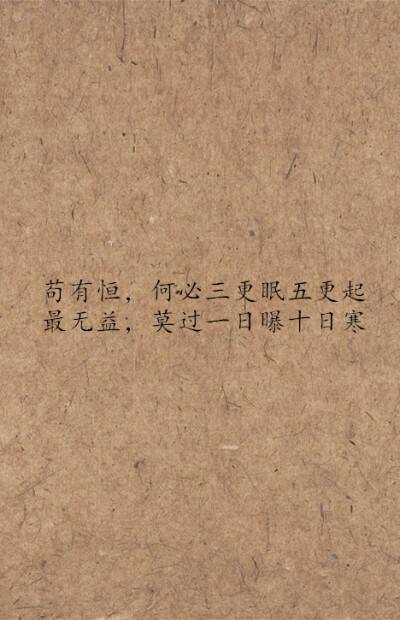 苟有恒，何必三更眠五更起
最无益；莫过一日曝十日寒